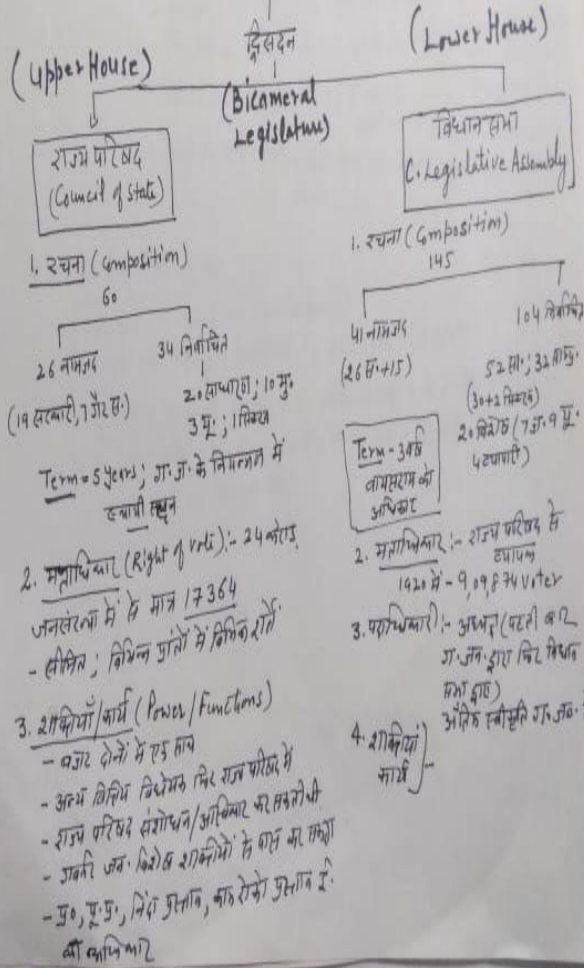 द्विसदन
(Bicameral
Legislature)
(Upper House)
राज्य परिषद
(Council of State)
1. रचना (Composition)
60
26 नामजद
(19 सरकारी, 7 गैर स.)
34 निर्वाचित
20 साधारण; 10 मु.
3 यू.; 1 सिक्ख
Term = 5 years; ग. ज. के नियन्त्रण में
स्थायी सदन
2. मताधिकार (Right of vote):- 24 करोड़
जनसंख्या में से मात्र 17364
- सीमित; विभिन्न प्रांतों में विभिन्न शर्तें
3. शक्तियाँ/कार्य (Power/Functions)
- बजट दोनों में एक साथ
- अन्य वित्तिय विधेयक फिर राज्य परिषद में
- राज्य परिषद संशोधन/अस्विकार कर सकती थी
- गवर्नर जन. विशेष शक्तीयों से पास कर सकता
- प्र०, पू. प्र., निंदा प्रस्ताव, काम रोको प्रस्ताव ई.
का अधिकार
(Lower House)
विधान सभा
C. Legislative Assembly
1. रचना (Composition)
145
41 नामजद
(26 स. + 15)
104 निर्वाचित
52 सा.; 32 साम्प्र.
(30+2 सिक्ख)
20 विशेष (7 ज. 9 यू.
4 व्यापारी)
Term - 3 वर्ष
वायसराय को
अधिकार
2. मताधिकार:- राज्य परिषद से
व्यापक
1920 में - 9,09,874 voter
3. पदाधिकारी:- अध्यक्ष (पहली बार
ग. जन. द्वारा फिर विधान
सभा द्वारा)
अंतिम स्वीकृति ग. जन.
4. शक्तियां
कार्य } -